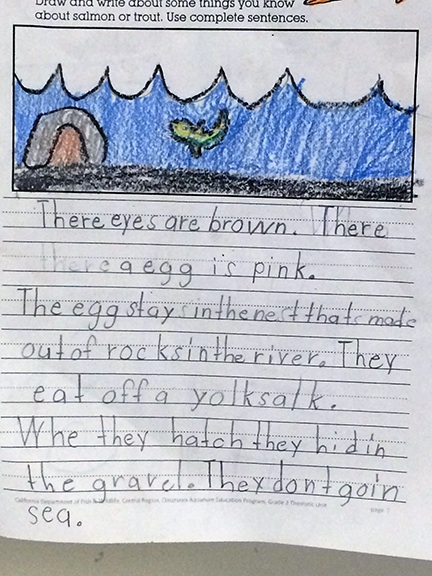 Draw and write about some things you know
about salmon or trout. Use complete sentences.
There eyes are brown. There
there a egg is pink.
The egg stays in the nest thats made
out of rocks in the river. They
eat off a yolksalk.
Whe they hatch they hid in
the gravel. They dont go in
sea.
California Department of Fish & Wildlife, Central Region, Classroom Aquarium Education Program, Grade 3 Thematic Unit
page